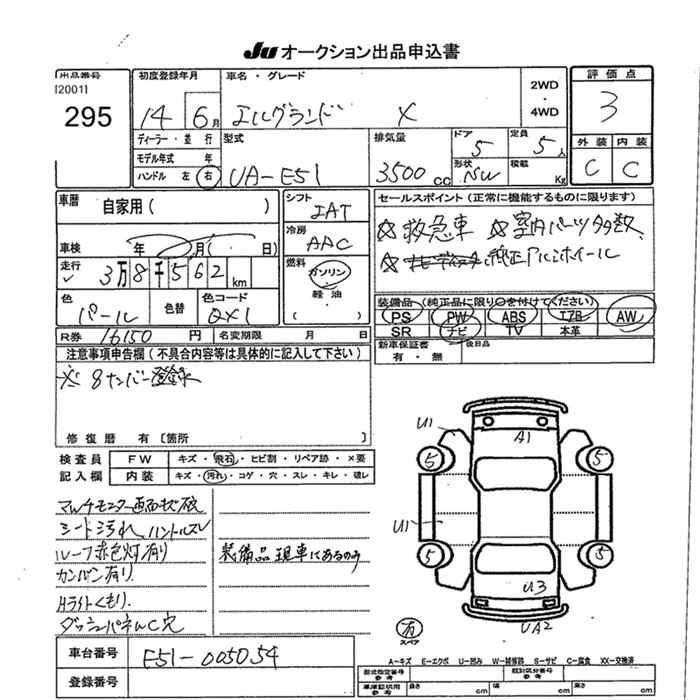 JU オークション出品申込書
出品番号
[2001]
295
初度登録年月
14 6月
車名・グレード
エルグランド X
2WD
・
4WD
評価点
3
ディーラー・並行
モデル年式 年
ハンドル 左 右
型式
UA-E51
排気量
3500cc
ドア
5
定員
5人
形状
NW
積載
Kg
外装 内装
C C
車歴
自家用( )
シフト
IAT
セールスポイント(正常に機能するものに限ります)
☆救急車 ☆室内パーツ多数、
純正アルミホイール
車検 年 月( 日)
冷房
AAC
走行
3万8千562km
燃料
ガソリン
・
軽油
( )
色
パール
色替
色コード
QX1
装備品(純正品に限り○を付けてください)
PS PW ABS エアB AW
SR ナビ TV 本革
R券 16150円 名変期限 月 日
新車保証書
有・無
後日品
注意事項申告欄(不具合内容等は具体的に記入して下さい)
※ 8ナンバー登録
修復歴 有〔箇所
検査員
記入欄
FW キズ・飛石・ヒビ割・リペア跡・×要
内装 キズ・汚れ・コゲ・穴・スレ・キレ・破レ
マルチモニター画面
シート汚れ ハンドルスレ
ルーフ赤色灯有り
カンバン有り
Hライトくもり
ダッシュパネルC穴
装備品現車にあるのみ
U1
A1
5
5
U1
5
5
U3
UA2
有
スペア
車台番号
E51-005054
登録番号
A-キズ E-エクボ U-凹み W-補修跡 S-サビ C-腐食 XX-交換済
型式指定番号
参考
類別区分番号
参考
車庫証明用
参考
長さ cm 幅 cm 高さ cm